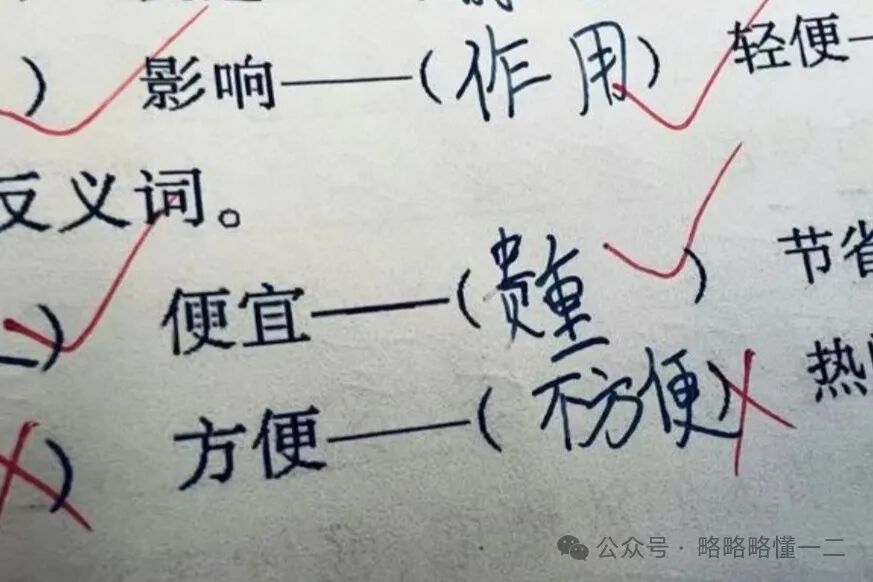 ) 影响——(作用) 轻便—
反义词。
) 便宜——(贵重) 节省
) 方便——(不方便) 热
公众号·略略略懂一二